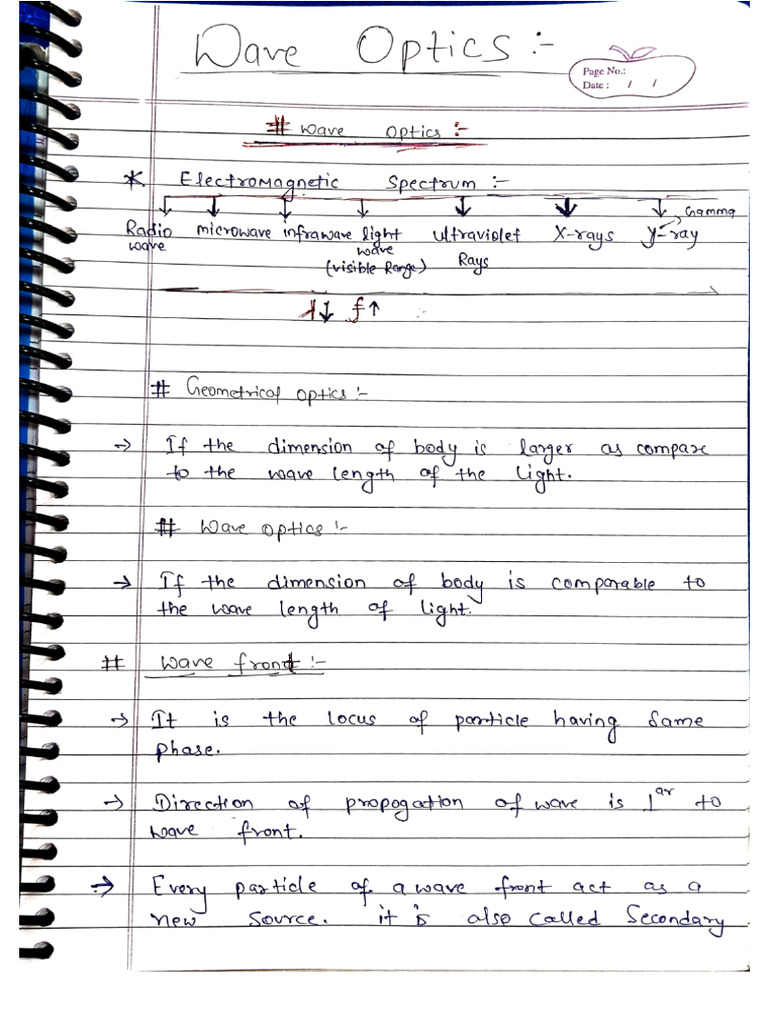 Wave Optics :-
Page No.:
Date : / /
# Wave optics :-
* Electromagnetic Spectrum :-
Radio wave microwave infrawave light wave (visible Range) ultraviolet Rays X-rays γ-ray Gamma
λ↓ f↑
# Geometrical optics :-
→ If the dimension of body is larger as compare
to the wave length of the light.
# Wave optics :-
→ If the dimension of body is comparable to
the wave length of light.
# Wave front :-
→ It is the locus of particle having same
phase.
→ Direction of propogation of wave is ⊥ar to
wave front.
→ Every particle of a wave front act as a
new source. it is also called Secondary